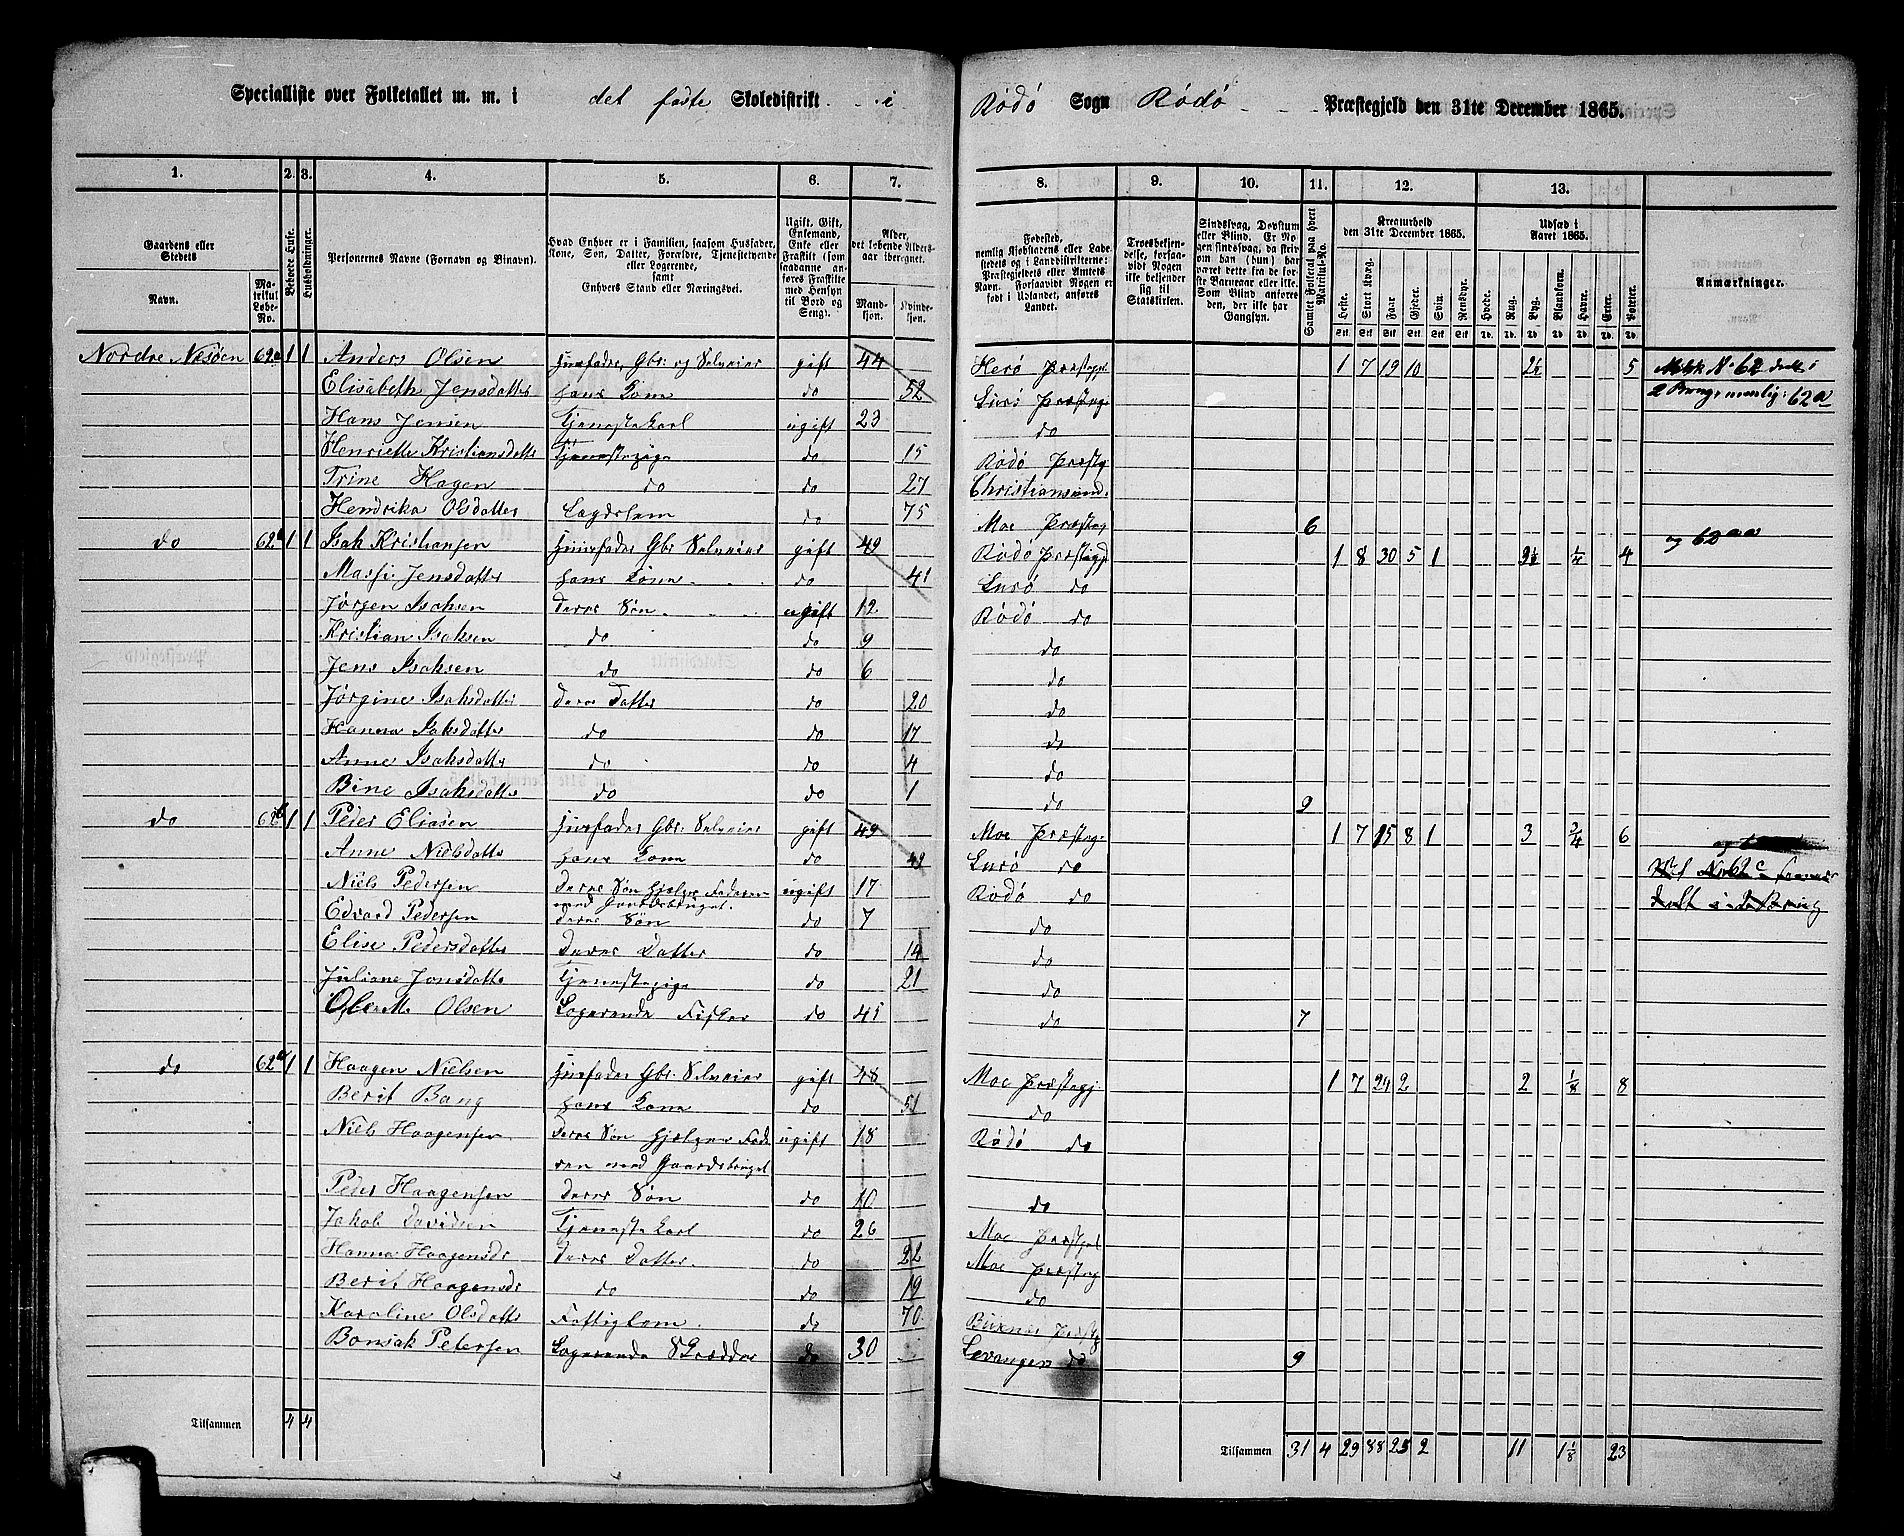 Specialliste over Folketallet m. m. i det faste Skoledistrikt i Rödö Sogn Rödö Præstegjeld den 31te December 1865.
1. 2. 3. 4. 5. 6. 7. 8. 9. 10. 11. 12. 13.
Gaardens eller Stedets
Navn.
Matrikul Løbe-No.
Beboede Huse.
Husholdninger.
Personernes Navne (Fornavn og Binavn).
Hvad Enhver er i Familien, saasom Husfader, Kone, Søn, Datter, Forældre, Tjenestetyende eller Logerende, samt
Enhvers Stand eller Næringsvei.
Ugift, Gift, Enkemand, Enke eller Fraskilt (som saadanne anføres Fraskilte med Hensyn til Bord og Seng).
Alder, det løbende Alders-aar iberegnet.
Mandkjøn. Kvindekjøn.
Fødested,
nemlig Kjøbstadens eller Ladestedets og i Landdistrikterne: Præstegjeldets eller Amtets Navn. Forsaavidt Nogen er født i Udlandet, anføres Landet.
Troesbekjendelse, forsaavidt Nogen ikke bekjender sig til Statskirken.
Sindssvag, Døvstum eller Blind. Er Nogen sindssvag, da skrives om han (hun) har været dette fra de første Barneaar eller ikke. Som Blind anføres den, der ikke har Gangsyn.
Samlet Folketal paa hvert Matrikul-No.
Kreaturhold den 31te December 1865.
Heste. Stort Kvæg. Faar. Gjeder. Svin. Rensdyr.
Udsæd i Aaret 1865.
Hvede. Rug. Byg. Blandkorn. Havre. Erter. Poteter.
Anmærkninger.
Nordre Nesöen 62a 1 1 Anders Olsen Huusfader, Gbr. og Selveier gift 44 Herö Præstegj. 1 7 19 10 2½ 5 Matrk No 62 deelt i
Elisabeth Jensdatter hans Kone do 52 Lurö Præsteg. 2 Brug, nemlig: 62a
Hans Jensen Tjenestekarl ugift 23 do
Henriette Kristiansdatter Tjenestepige do 15 Rödö Præsteg
Trine Hagen do do 27 Christiansund.
Hendrika Olsdatter Lægdslem do 75 Moe Præsteg 6
do 62 1 1 Isak Kristiansen Huusfader Gbr Selveier gift 49 Rödö Præstegj 1 8 30 5 1 2½ ¼ 4 og 62aa
Massi Jensdatter hans Kone do 41 Lurö do
Jörgen Isaksen deres Sön ugift 12 Rödö do
Kristian Isaksen do do 9 do
Jens Isaksen do do 6 do
Jörgine Isaksdatter deres Datter do 20 do
Hanna Isaksdatter do do 17 do
Anne Isaksdatter do do 4 do
Bine Isaksdatter do do 1 do 9
do 62b 1 1 Peder Eliasen Huusfader Gbr. Selveier gift 49 Moe Præsteg. 1 7 15 8 1 3 ¾ 6 og
Anne Nielsdatter hans Kone do 49 Lurö do
Niels Pedersen deres Sön hjelper Faderen ugift 17 Rödö do
med Gaardsbruget.
Edvard Pedersen deres Sön do 7 do
Elise Pedersdatter deres Datter do 14 do
Juliane Jonsdatter Tjenestepige do 21 do
Ole M. Olsen Logerende Fisker do 45 do 7
do 62 1 1 Haagen Nielsen Huusfader Gbr: Selveier gift 48 Moe Præstegj. 1 7 24 2 2 ⅛ 8
Berit Bang hans Kone do 51 do
Niels Haagensen deres Sön hjelper Fade ugift 18 Rödö do
ren med Gaardsbruget
Peder Haagensen deres Sön do 10 do
Jakob Davidsen Tjenestekarl do 26 Moe Præstegj
Hanna Haagensdr deres Datter. do 22 Moe Præsteg
Berit Haagensdr do do 19 do
Karoline Olsdatter Fattiglem do 70 Buxnes Præsteg
Bonsak Petersen Logerende Skrædder do 30 Levanger do 9
Tilsammen 4 4
Tilsammen 31 4 29 88 25 2 11 1⅛ 23